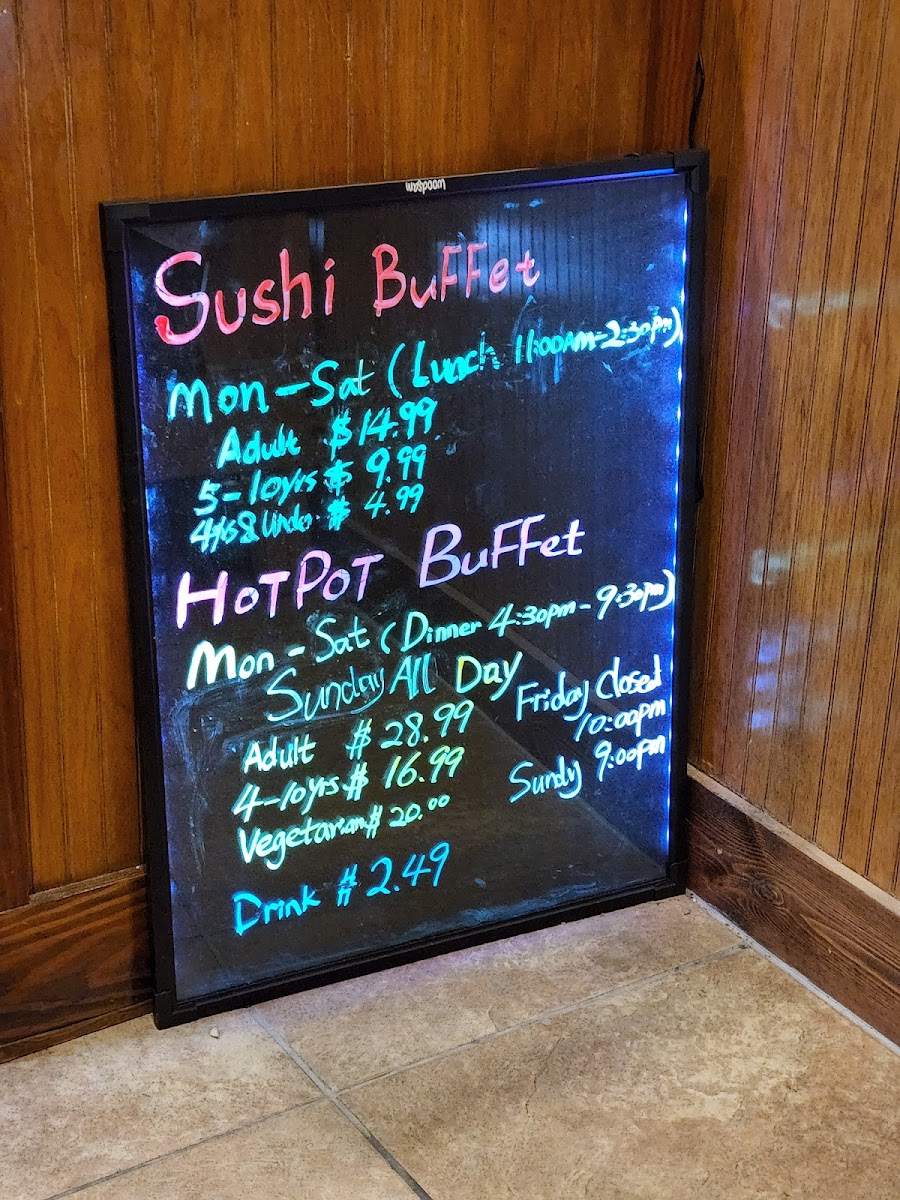 woodsam
Sushi BuFFet
Mon-Sat (Lunch 11:00AM-2:30pm)
Adult $14.99
5-10yrs $ 9.99
4yrs & Under $ 4.99
HoTPoT BuFFet
Mon-Sat (Dinner 4:30pm-9:30pm)
Sunday All Day
Adult $ 28.99
4-10yrs $ 16.99
Vegetarian $ 20.00
Friday Closed
10:00pm
Sundy 9:00pm
Drink $ 2.49